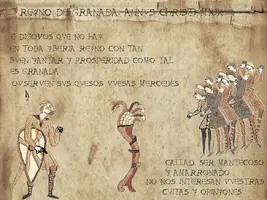 REYNO DE GRANADA. ANNVS CHRISTI MXIX
E DIGOVOS QUE NO HAY
EN TODA YBERIA REYNO CON TAN
BVEN YANTAR Y PROSPERIDAD COMO TAL
ES GRANADA
OVSERVEN SVS QVESOS VUESAS MERCEDES
CALLAD, SER MANTECOSO
Y AMARRONADO
NO NOS INTERESAN VVESTRAS
CVITAS Y OPINIONES